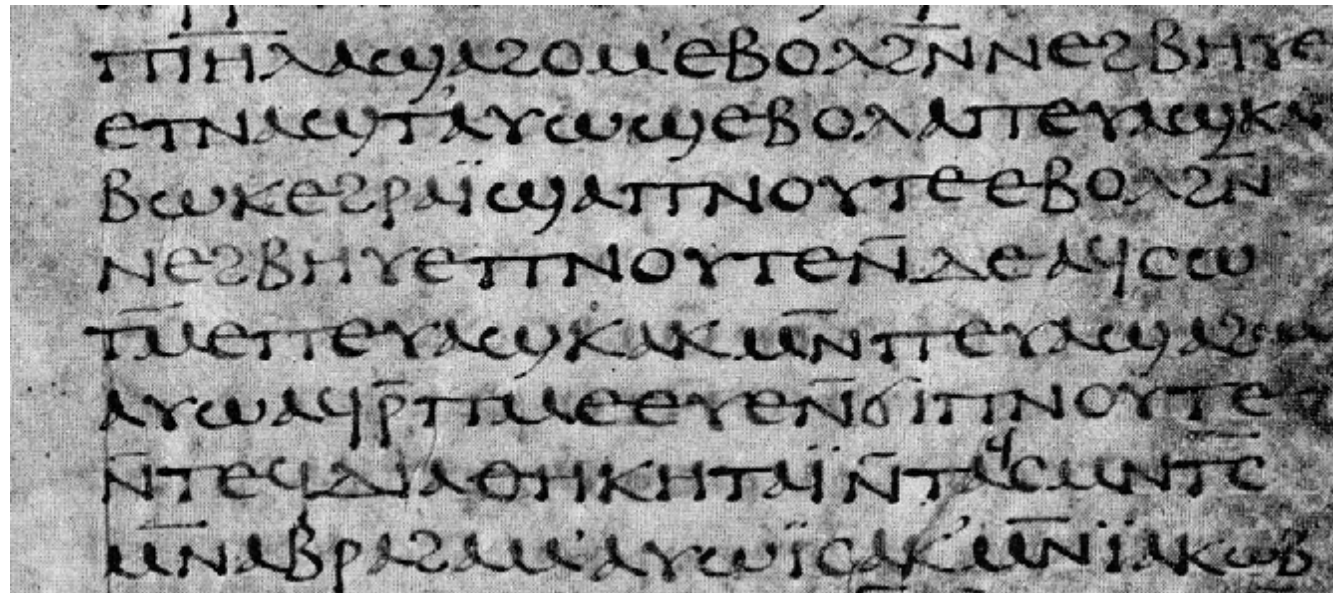 ⲡⲓ̅ⲏ̅ⲗⲁϣⲁϩⲟⲙ’ⲉⲃⲟⲗϩⲛ̅ⲛⲉϩⲃⲏⲩⲉ
ⲉⲧⲛⲁϣⲧ’ⲁⲩⲱϣⲉⲃⲟⲗⲁⲡⲉⲩⲁϣⲕⲁⲕ
ⲃⲱⲕⲉϩⲣⲁⲓ̈ϣⲁⲡⲛⲟⲩⲧⲉⲉⲃⲟⲗϩⲛ̅
ⲛⲉϩⲃⲏⲩⲉⲡⲛⲟⲩⲧⲉⲛ̅ⲇⲉⲁϥⲥⲱ
ⲧⲙ̅ⲉⲡⲉⲩⲁϣⲕⲁⲕⲙⲛ̅ⲡⲉⲩⲁϣⲁϩⲟⲙ
ⲁⲩⲱⲁϥⲣ̅ⲡⲙⲉⲉⲩⲉⲛ̅ϭⲓⲡⲛⲟⲩⲧⲉ
ⲛ̅ⲧⲉϥⲇⲓⲁⲑⲏⲕⲏⲧⲁⲓ̈ⲛ̅ⲧⲁϥⲥⲙⲛⲧⲥ̅
ⲙⲛ̅ⲁⲃⲣⲁϩⲁⲙ’ⲁⲩⲱⲓ̈ⲥⲁⲕ’ⲙⲛ̅ⲓ̈ⲁⲕⲱⲃ